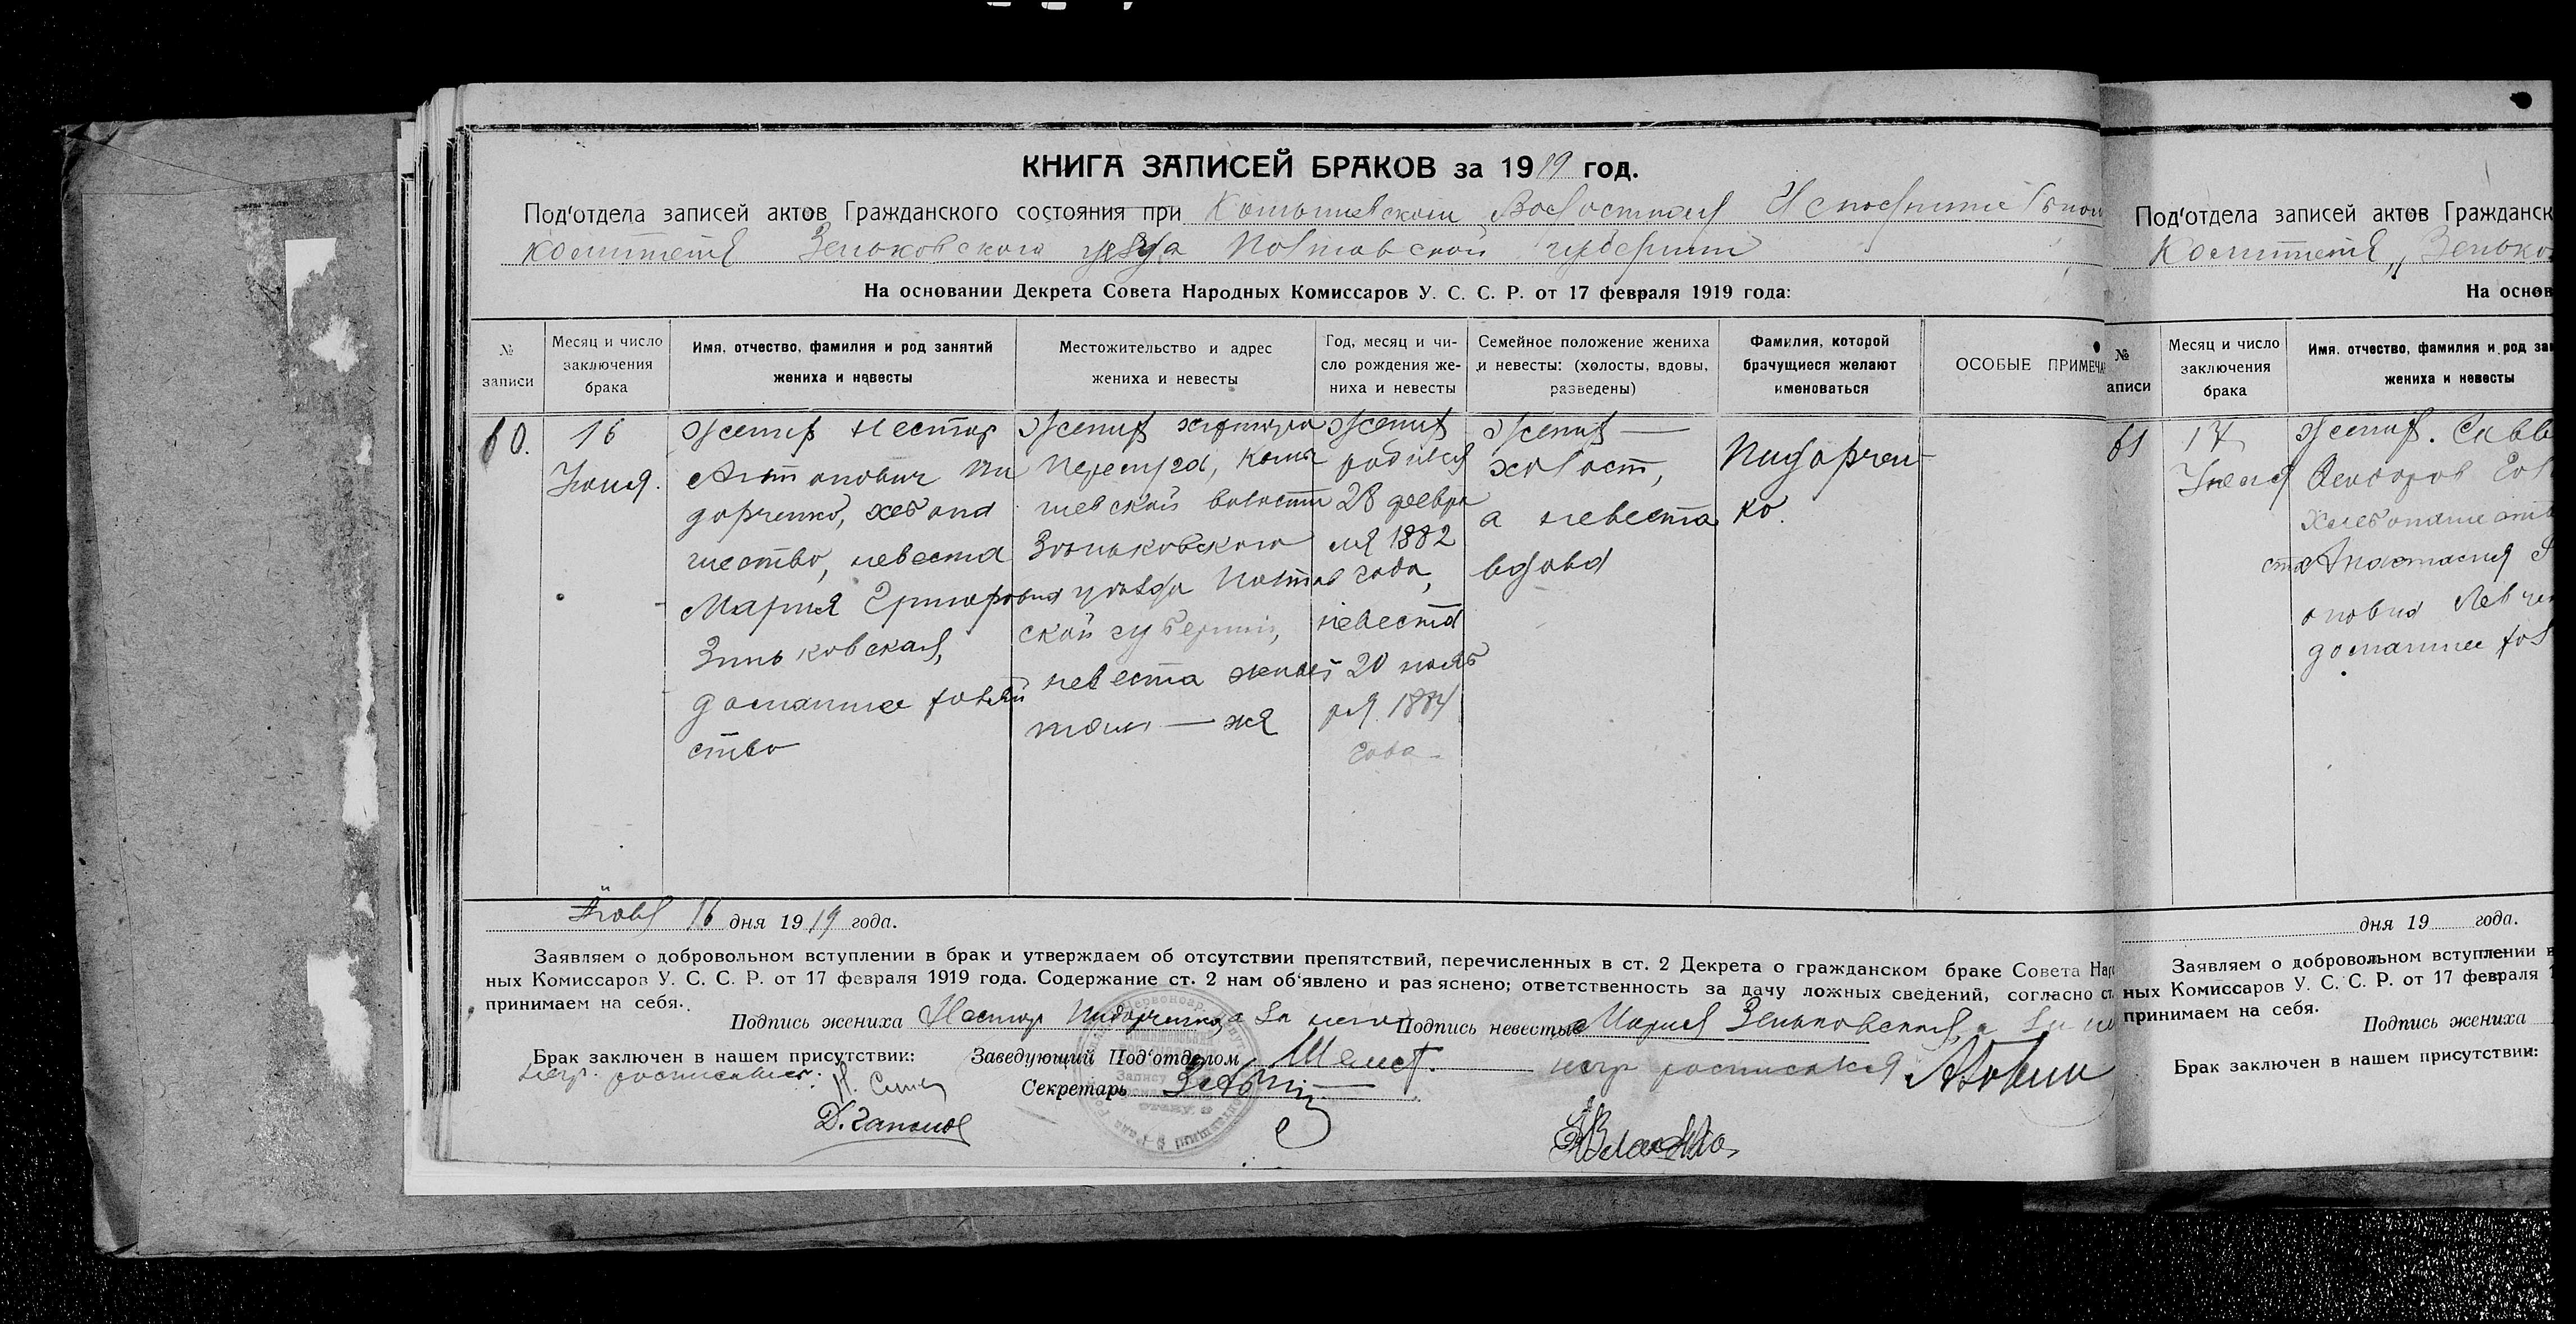 КНИГА ЗАПИСЕЙ БРАКОВ за 1919 год.
Под'отдела записей актов Гражданского состояния при Комышевском Волостном
комитете Зеньковского уезда Полтавской губернии
На основании Декрета Совета Народных Комиссаров У. С. С. Р. от 17 февраля 1919 года:
№ записи
Месяц и число заключения брака
Имя, отчество, фамилия и род занятий жениха и невесты
Местожительство и адрес жениха и невесты
Год, месяц и число рождения жениха и невесты
Семейное положение жениха и невесты: (холосты, вдовы, разведены)
Фамилия, которой брачущиеся желают именоваться
ОСОБЫЕ ПРИМЕЧА
60.
16
Июня.
Жених Нестор
Антонович Пи
дорченко, хлебопа
шество, невеста
Мария
Зиньковская,
домашнее
ство
Жених хутора
Комы
шевской волости
Зеньковского
уезда Полтав
ской губернии,
невеста живет
там — же
Жених
родился
28 февра
ля 1882
года,
невеста
20 нояб
ря 1884
года
Жених —
холост,
а невеста
вдова
Пидорчен-
ко.
16 дня 1919 года.
Заявляем о добровольном вступлении в брак и утверждаем об отсутствии препятствий, перечисленных в ст. 2 Декрета о гражданском браке Совета Нар
ных Комиссаров У. С. С. Р. от 17 февраля 1919 года. Содержание ст. 2 нам об'явлено и раз'яснено; ответственность за дачу ложных сведений, согласно ст.
принимаем на себя.
Подпись жениха Нестор Пидорченко а за него Подпись невесты Мария Зеньковская, а за
Брак заключен в нашем присутствии: Заведующий Под'отделом
негр. расписался. негр расписался
Секретарь
Под'отдела записей актов Гражданск
Комитете Зенько
На основ
№ аписи
Месяц и число заключения брака
Имя, отчество, фамилия и род за
жениха и невесты
61
17
Июня
Жених. Савв
Федоров
Хлебопашеств
ста Анастасия
домашнее
дня 19 года.
Заявляем о добровольном вступлении в
ных Комиссаров У. С. С. Р. от 17 февраля 1
принимаем на себя.
Подпись жениха
Брак заключен в нашем присутствии: